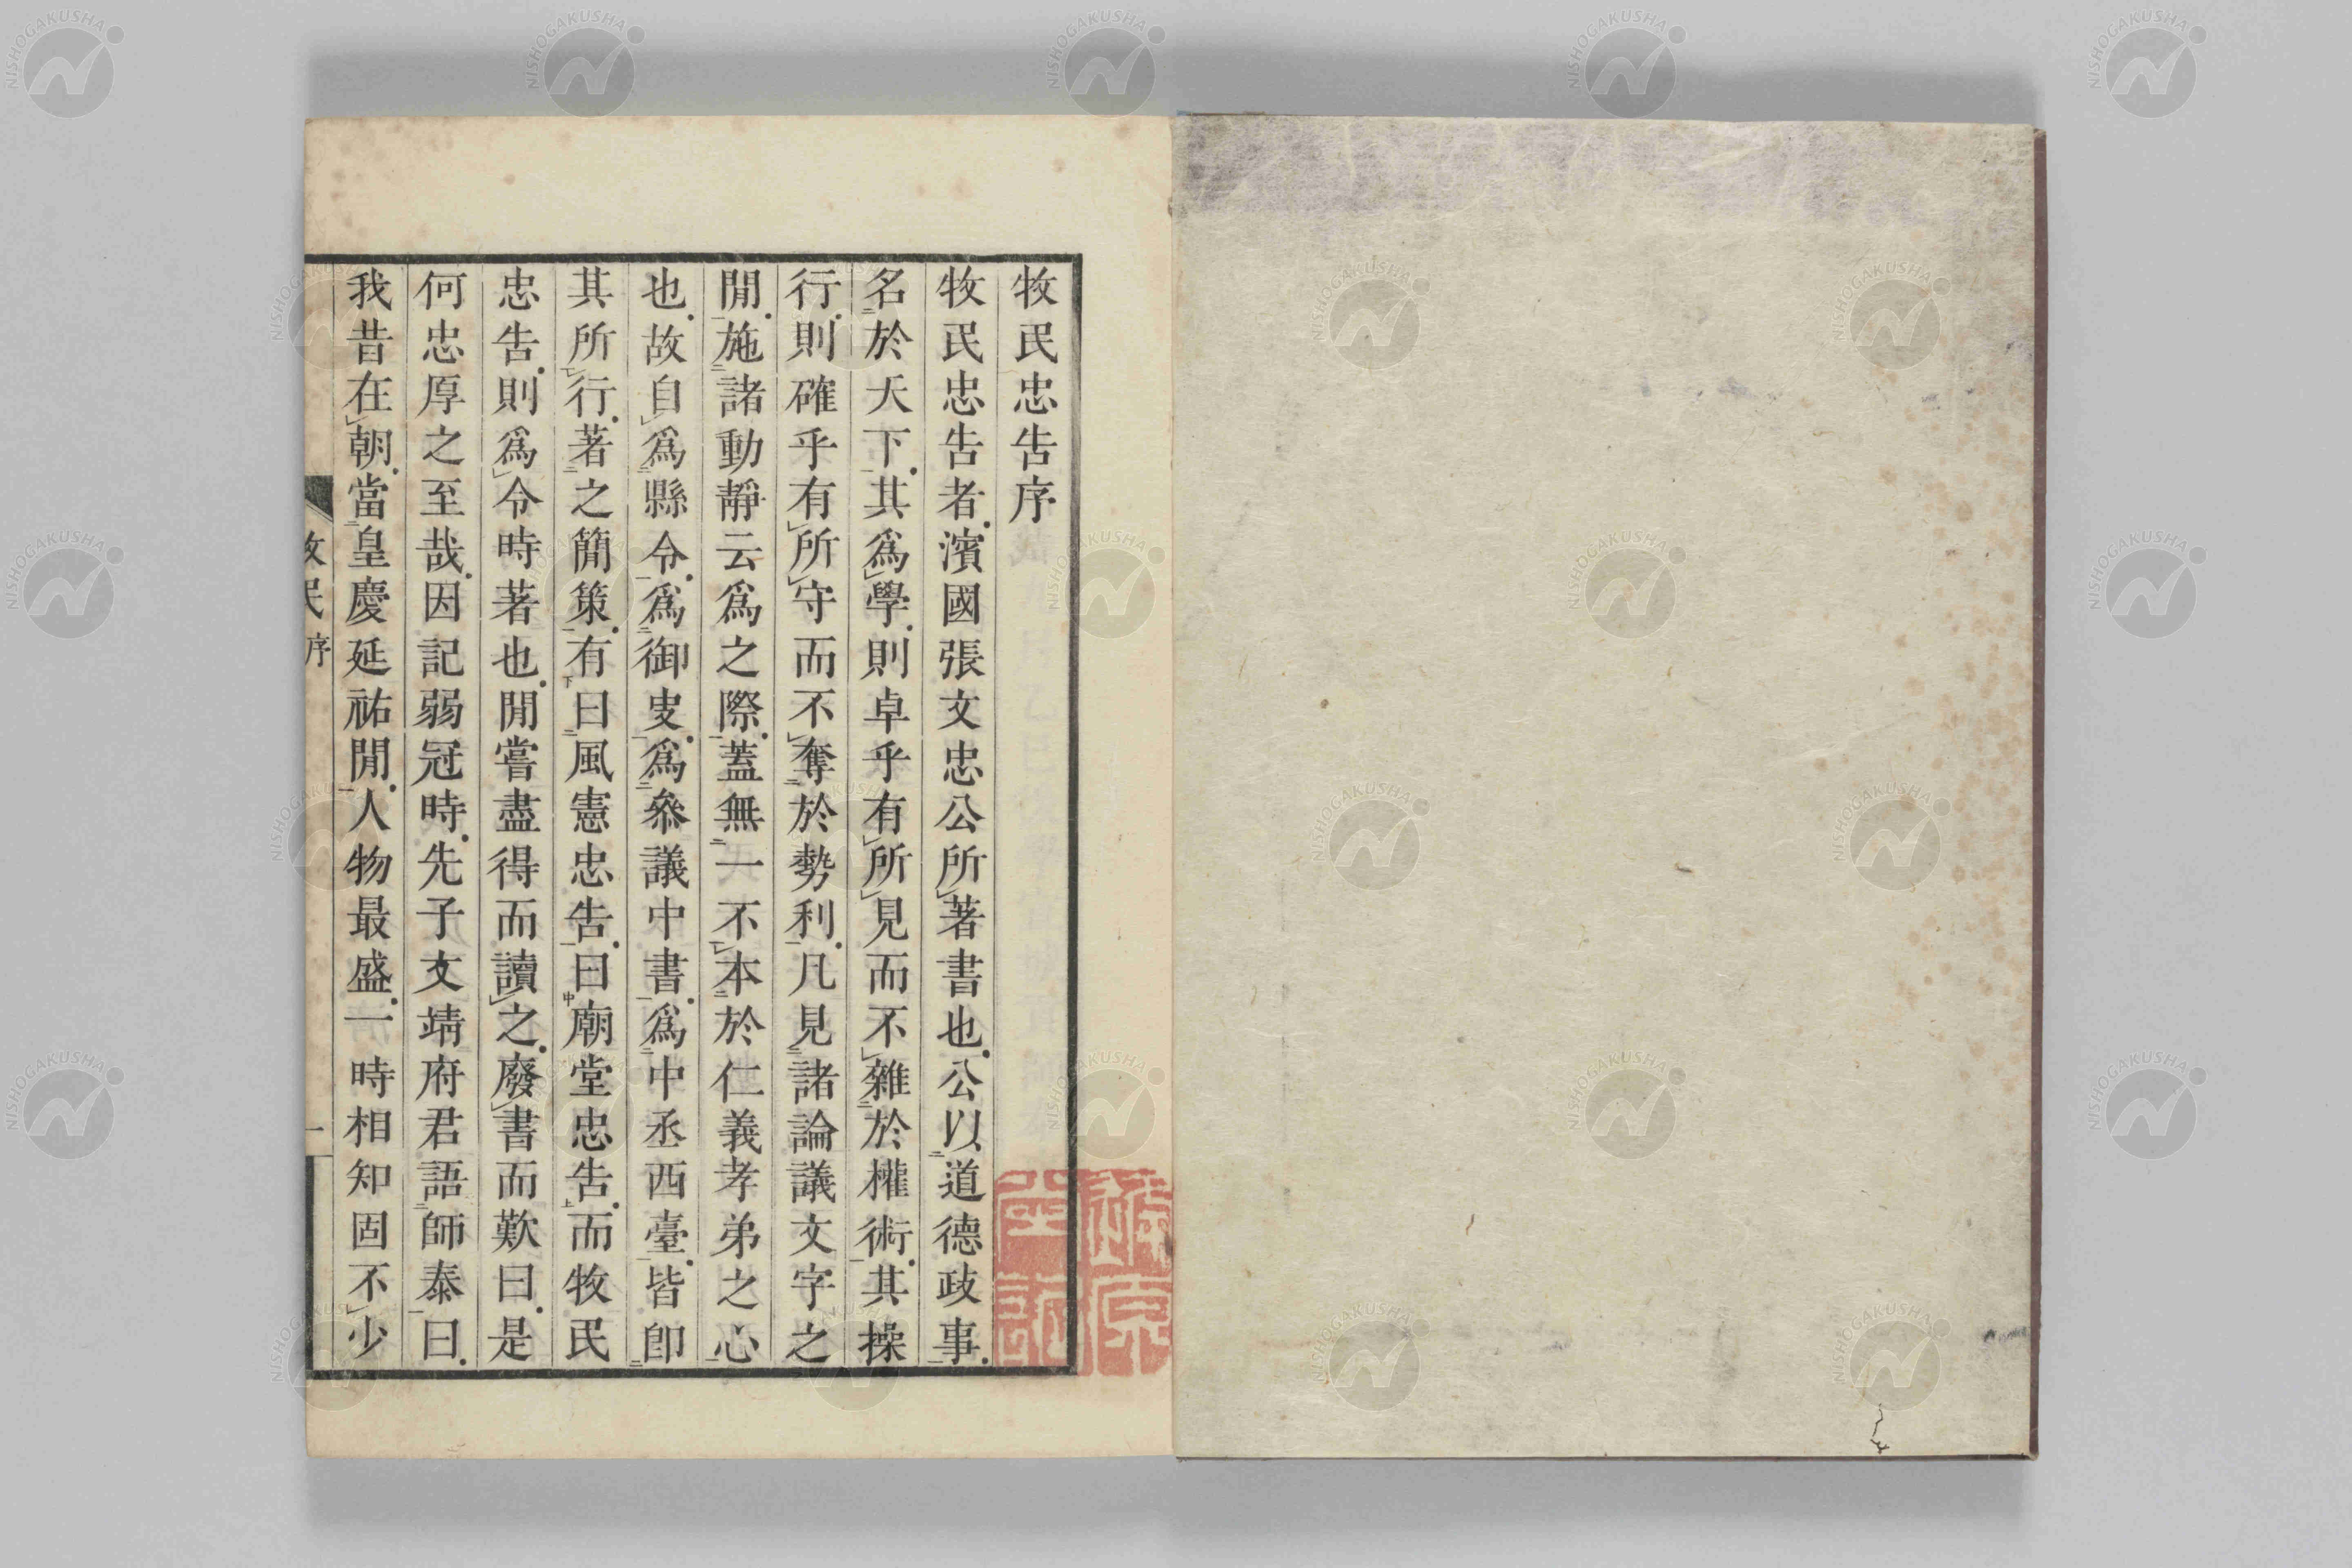 牧民忠告序
牧民忠告者濱國張文忠公所著書也公以道德政事
名於天下其爲學則卓乎有所見而不雜於權術其操
行則確乎有所守而不奪於勢利凡見諸論議文字之
閒施諸動靜云爲之際蓋無一不本於仁義孝弟之心
也故自爲縣令爲御史爲參議中書爲中丞西臺皆卽
其所行著之簡策有曰風憲忠告曰廟堂忠告而牧民
忠告則爲令時著也閒嘗盡得而讀之廢書而歎曰是
何忠厚之至哉因記弱冠時先子文靖府君語師泰曰
我昔在朝當皇慶延祐閒人物最盛一時相知固不少
牧民 序
一
NISHOGAKUSHA